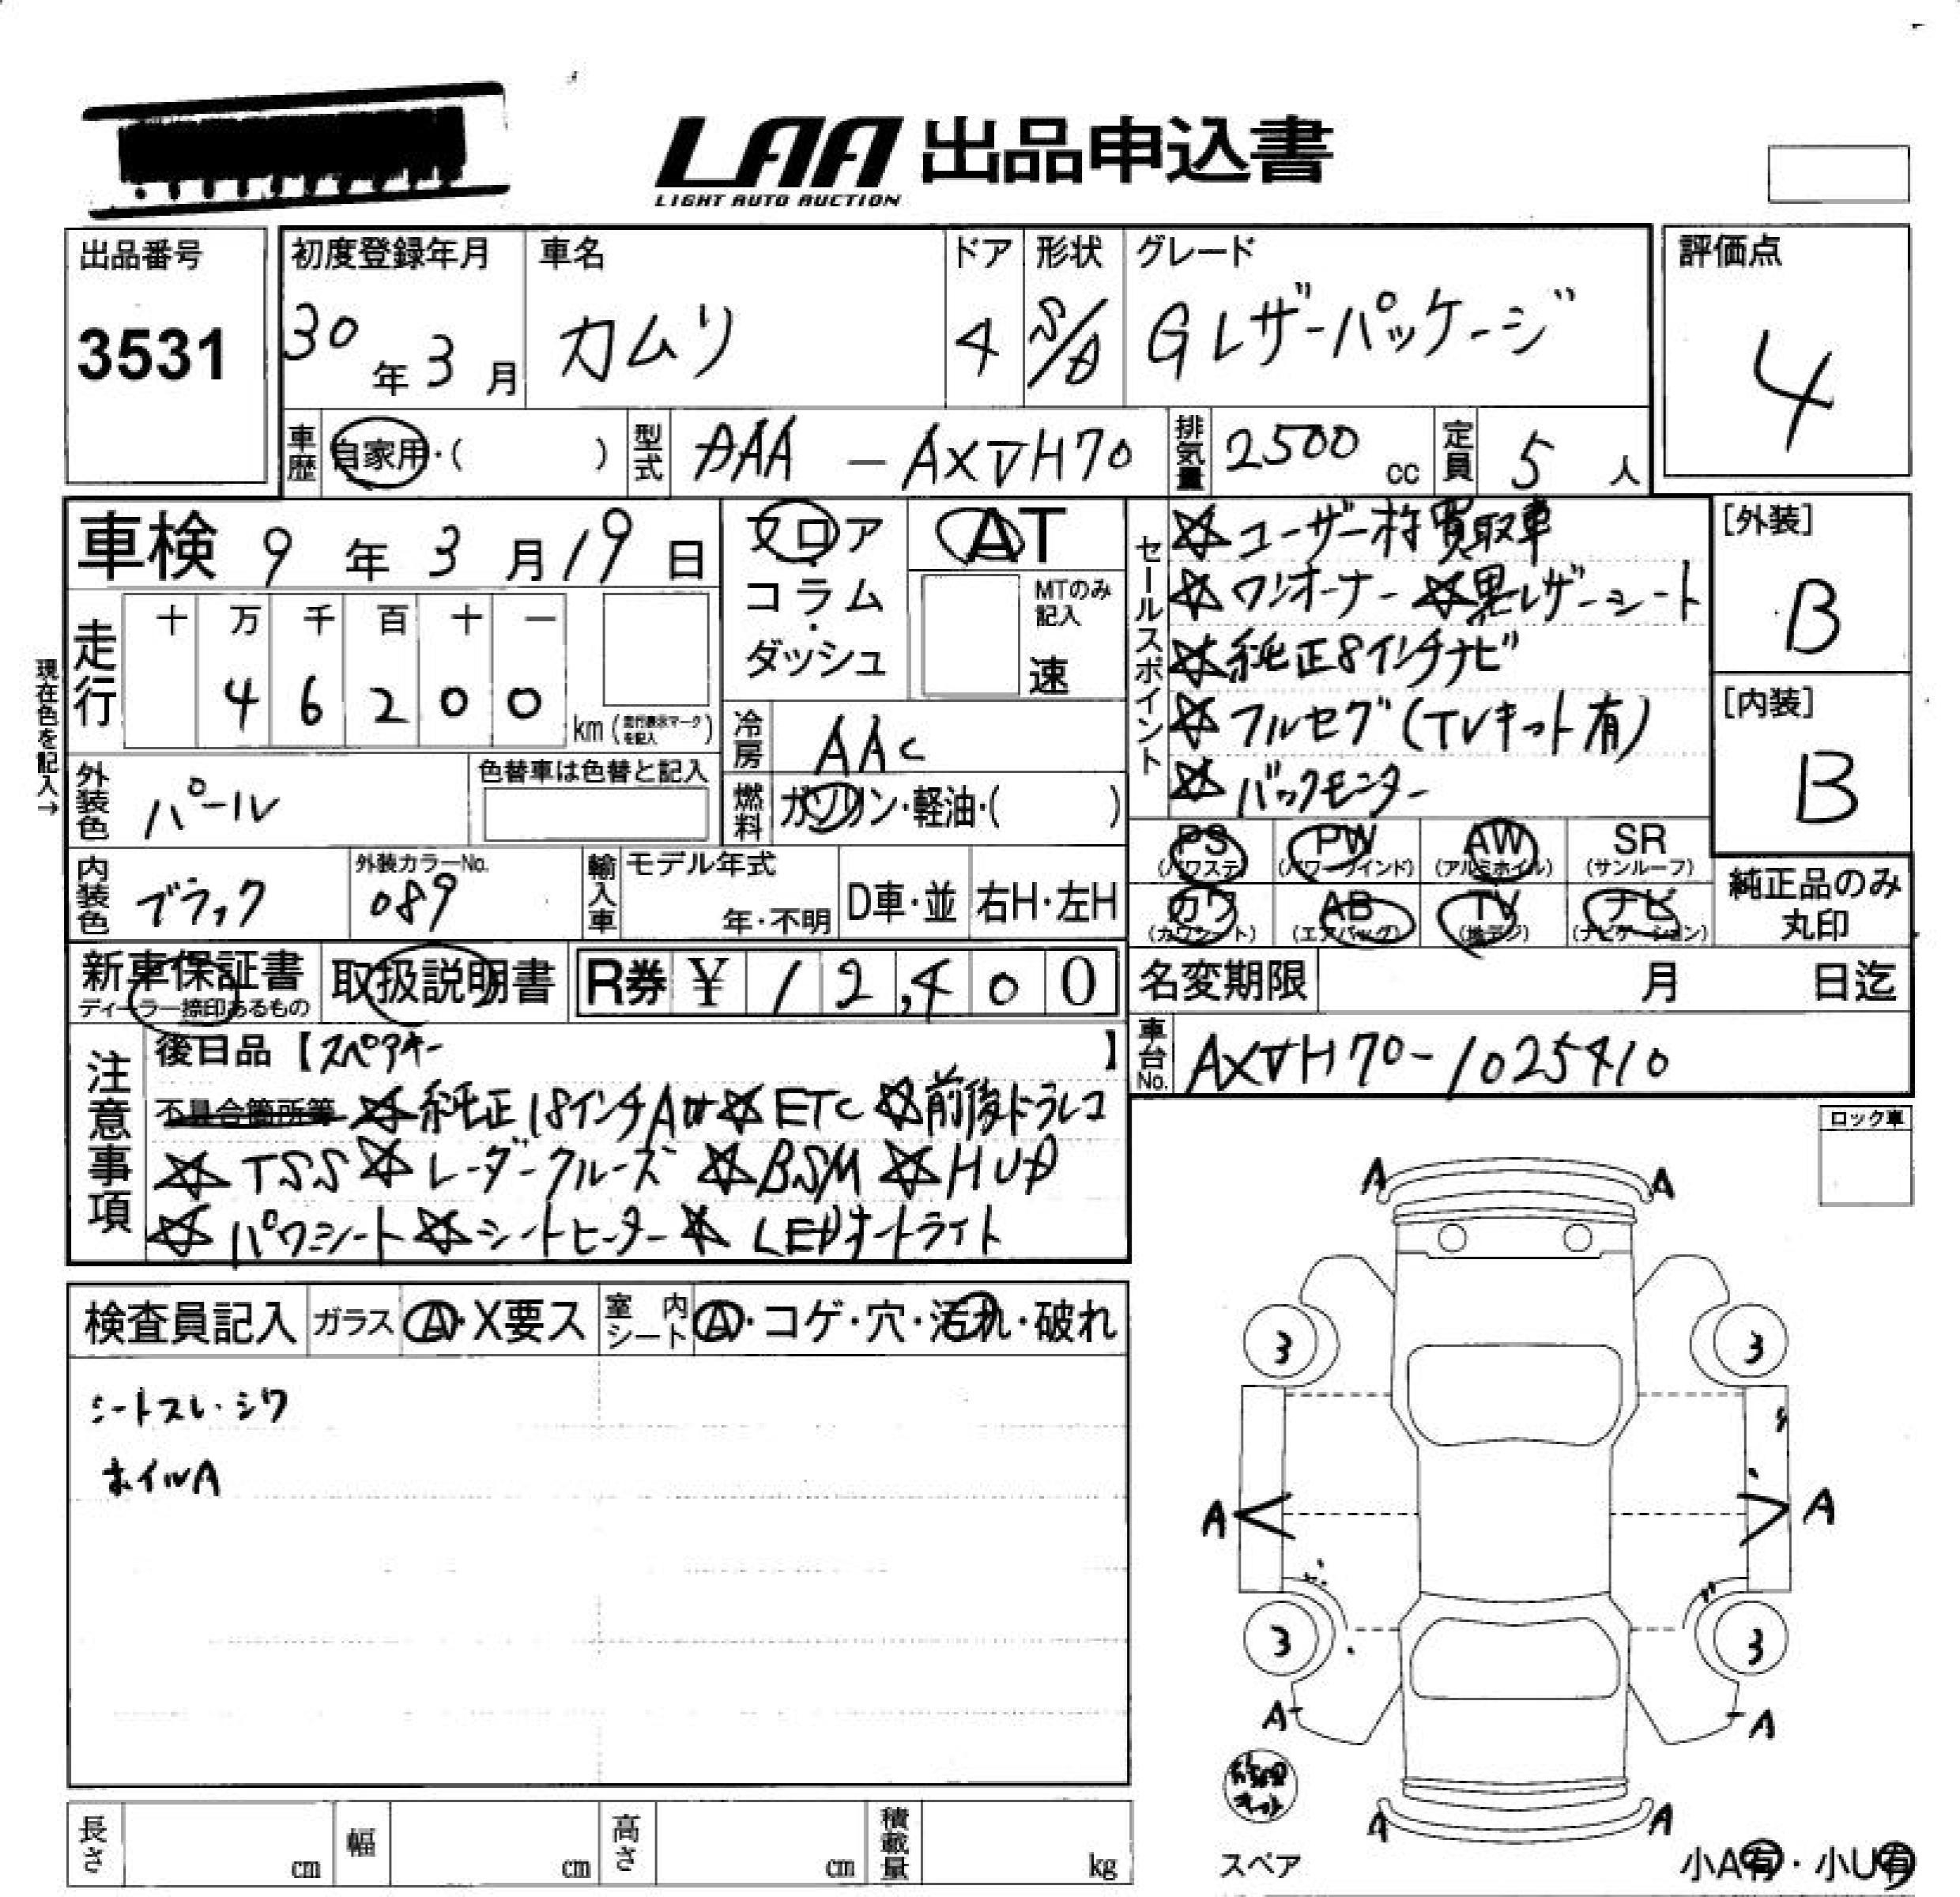 LAA 出品申込書
LIGHT AUTO AUCTION
出品番号
3531
初度登録年月
30年3月
車名
カムリ
ドア
4
形状
S/D
グレード
Gレザーパッケージ
評価点
4
車歴
自家用・( )
型式
AAA - AXVH70
排気量
2500 cc
定員
5人
車検 9年3月19日
フロア・コラム・ダッシュ
AT
MTのみ記入
速
セールスポイント
☆ユーザー様買取車
☆ワンオーナー ☆黒レザーシート
☆純正8インチナビ
☆フルセグ(TVキット有)
☆バックモニター
[外装]
B
[内装]
B
現在色を記入→
走行
十 万 千 百 十 一
4 6 2 0 0 km (走行表示マークを記入)
冷房
AAC
外装色
パール
色替車は色替と記入
燃料
ガソリン・軽油・( )
PS (パワステ) PW (パワーウインド) AW (アルミホイル) SR (サンルーフ)
カワ (カワシート) AB (エアバッグ) TV (地デジ) ナビ (ナビゲーション)
純正品のみ丸印
内装色
ブラック
外装カラーNo.
089
輸入車
モデル年式
年・不明
D車・並
右H・左H
新車保証書
ディーラー捺印あるもの
取扱説明書
R券 ¥ 12,400
名変期限 月 日迄
車台No.
AXVH70-1025410
注意事項
後日品【スペアキー 】
不具合箇所等 ☆純正18インチAW ☆ETC ☆前後ドラレコ
☆TSS ☆レーダークルーズ ☆BSM ☆HUD
☆パワーシート ☆シートヒーター ☆LEDオートライト
ロック車
検査員記入 ガラス A・X要ス 室内シート A・コゲ・穴・汚れ・破れ
シートスレ・シワ
ホイルA
A A
3 3
A A
3 3
A A
A A
スペア
小A有・小U有
長さ cm 幅 cm 高さ cm 積載量 kg